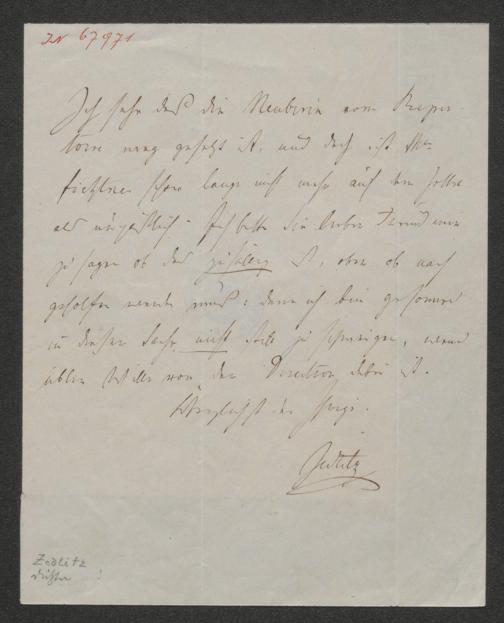 IN 67971
Ich sehe daß die Neuberin vom Reper-
toire weg gesetzt ist, und doch ist die
Fichtner schon lange nicht mehr auf dem Zettel
als unpäßlich. Ich bitte Sie lieber Freund mir
zu sagen ob das zufällig ist, oder ob nach
geholfen werden muß; denn ich bin gesonnen
in dieser Sache nicht stille zu schweigen, wenn
übler Wille von der Direction dabei ist.
der Ihrige.
Zedlitz
Zedlitz
Dichter